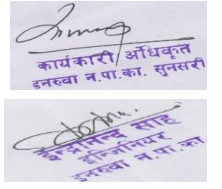 कार्यकारी अधिकृत
इनरुवा न.पा.का. सुनसरी
इन्द्रानन्द साह
इन्जिनियर
इनरुवा न.पा.का